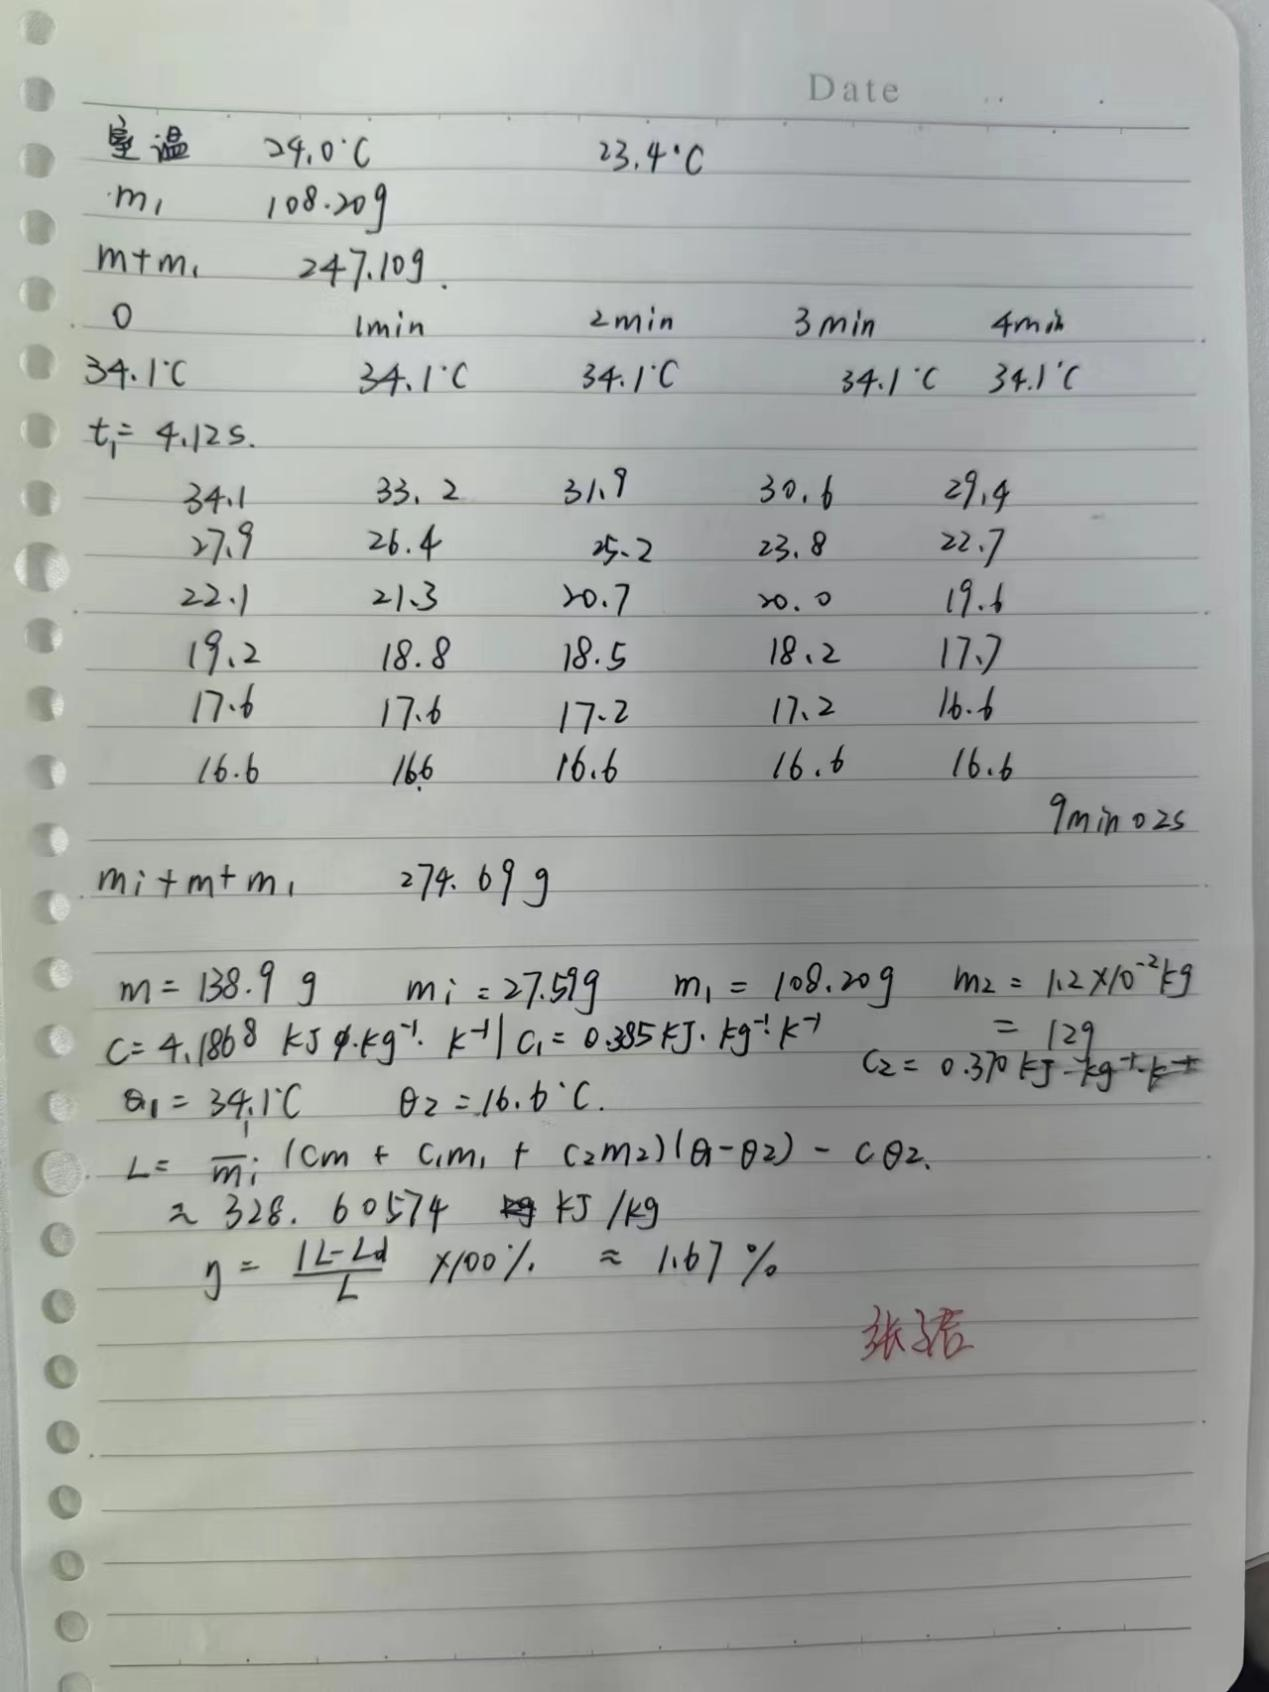 Date
室温 24.0°C 23.4°C
m₁ 108.20g
m+m₁ 247.10g.
0 1min 2min 3min 4min
34.1°C 34.1°C 34.1°C 34.1°C 34.1°C
t₁= 4.12s.
34.1 33.2 31.9 30.6 29.4
27.9 26.4 25.2 23.8 22.7
22.1 21.3 20.7 20.0 19.6
19.2 18.8 18.5 18.2 17.7
17.6 17.6 17.2 17.2 16.6
16.6 16.6 16.6 16.6 16.6
9min02s
mi+m+m₁ 274.69g
m=138.9g mi=27.59g m₁=108.20g m₂=1.2×10⁻²kg
=12g
C=4.1868 kJ·kg⁻¹·k⁻¹ | C₁=0.385kJ·kg⁻¹·k⁻¹
C₂=0.370kJ·kg⁻¹·k⁻¹
θ₁=34.1°C θ₂=16.6°C.
L= 1/mi (cm + c₁m₁ + c₂m₂)(θ₁-θ₂) - cθ₂.
≈ 328.60574 kJ/kg
η = |L-L₀|/L ×100% ≈ 1.67%